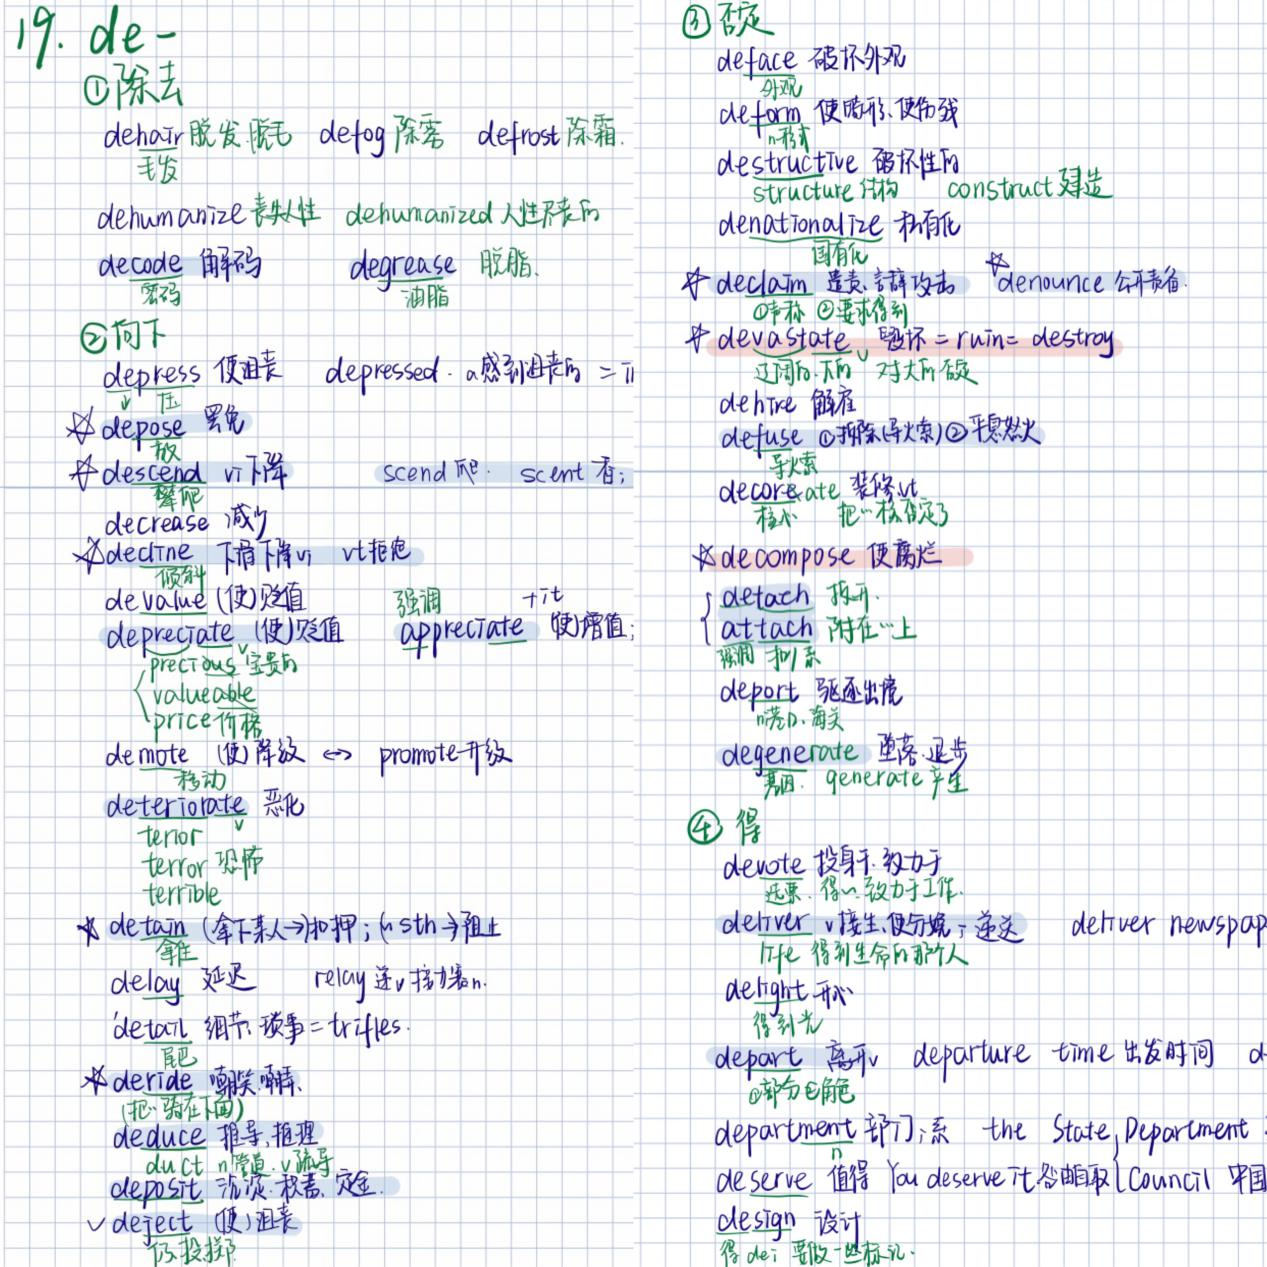 19. de-
①除去
dehair 脱发.脱毛 defog 除雾 defrost 除霜.
毛发
dehumanize 丧失人性 dehumanized 人性尽丧的
decode 解码 degrease 脱脂.
密码 油脂
②向下
depress 使沮丧 depressed. a感到沮丧的 =
↓ 压
☆depose 罢免
放
☆descend vi下降 scend 爬. scent 香;
攀爬
decrease 减少
☆decline 下滑下降vi vt拒绝
倾斜
devalue (使)贬值 强调 +it
depreciate (使)贬值 appreciate (使)增值;
v
precious 宝贵的
valueable
price 价格
demote (使)降级 <-> promote 升级
移动
deteriorate 恶化
v
terior
terror 恐怖
terrible
☆detain (拿下某人→)扣押; (~sth→)阻止
拿住
delay 延迟 relay 递v 接力赛n.
detail 细节.琐事=trifles.
尾巴
☆deride 嘲笑.嘲弄.
(把…骑在下面)
deduce 推导,推理
duct n管道.v疏导
deposit 沉淀.积蓄.定金.
✓deject (使)沮丧
投掷.
③否定
deface 破坏外观
外观
deform 使畸形.使伤残
n形式
destructive 破坏性的
structure 结构 construct 建造
denationalize 私有化
国有化
☆declaim 谴责.言辞攻击 ☆denounce 公开责备.
①声称 ②要求得到
☆devastate 毁坏=ruin=destroy
辽阔的.大的 v 对大的否定
dehire 解雇
defuse ①拆除(导火索)②平息怒火
导火索
decorate 装修vt
核心 把…核否定了
☆decompose 使腐烂
detach 拆开.
attach 附在…上
强调 系
deport 驱逐出境
n港口.海关
degenerate 堕落.退步
基因. generate 产生
④得
devote 投身于.致力于
选票. 得…致力于工作.
deliver v接生.使分娩;递送 deliver newspap
life 得到生命的那个人
delight 开心
得到光
depart 离开v departure time 出发时间 d
①部分②角色
department 部门;系 the State Department
n
deserve 值得 You deserve it.咎由自取 Council 中国
design 设计
得dei 要做一些标记.